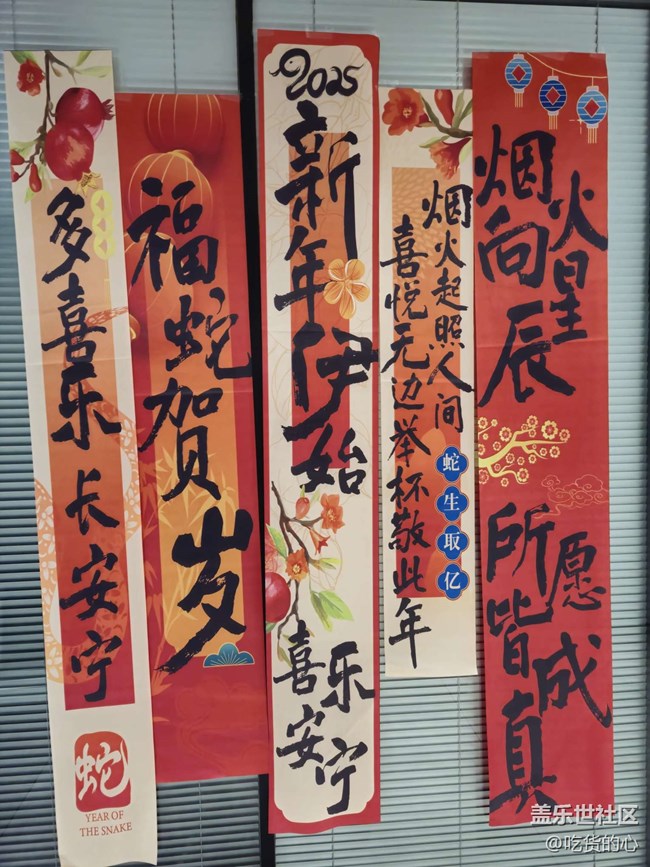 多喜乐长安宁
蛇
YEAR OF
THE SNAKE
福蛇贺岁
2025
新年伊始
喜乐安宁
烟火起照人间
喜悦无边举杯敬此年
蛇生取亿
烟火向星辰
所愿皆成真
盖乐世社区
@吃货的心